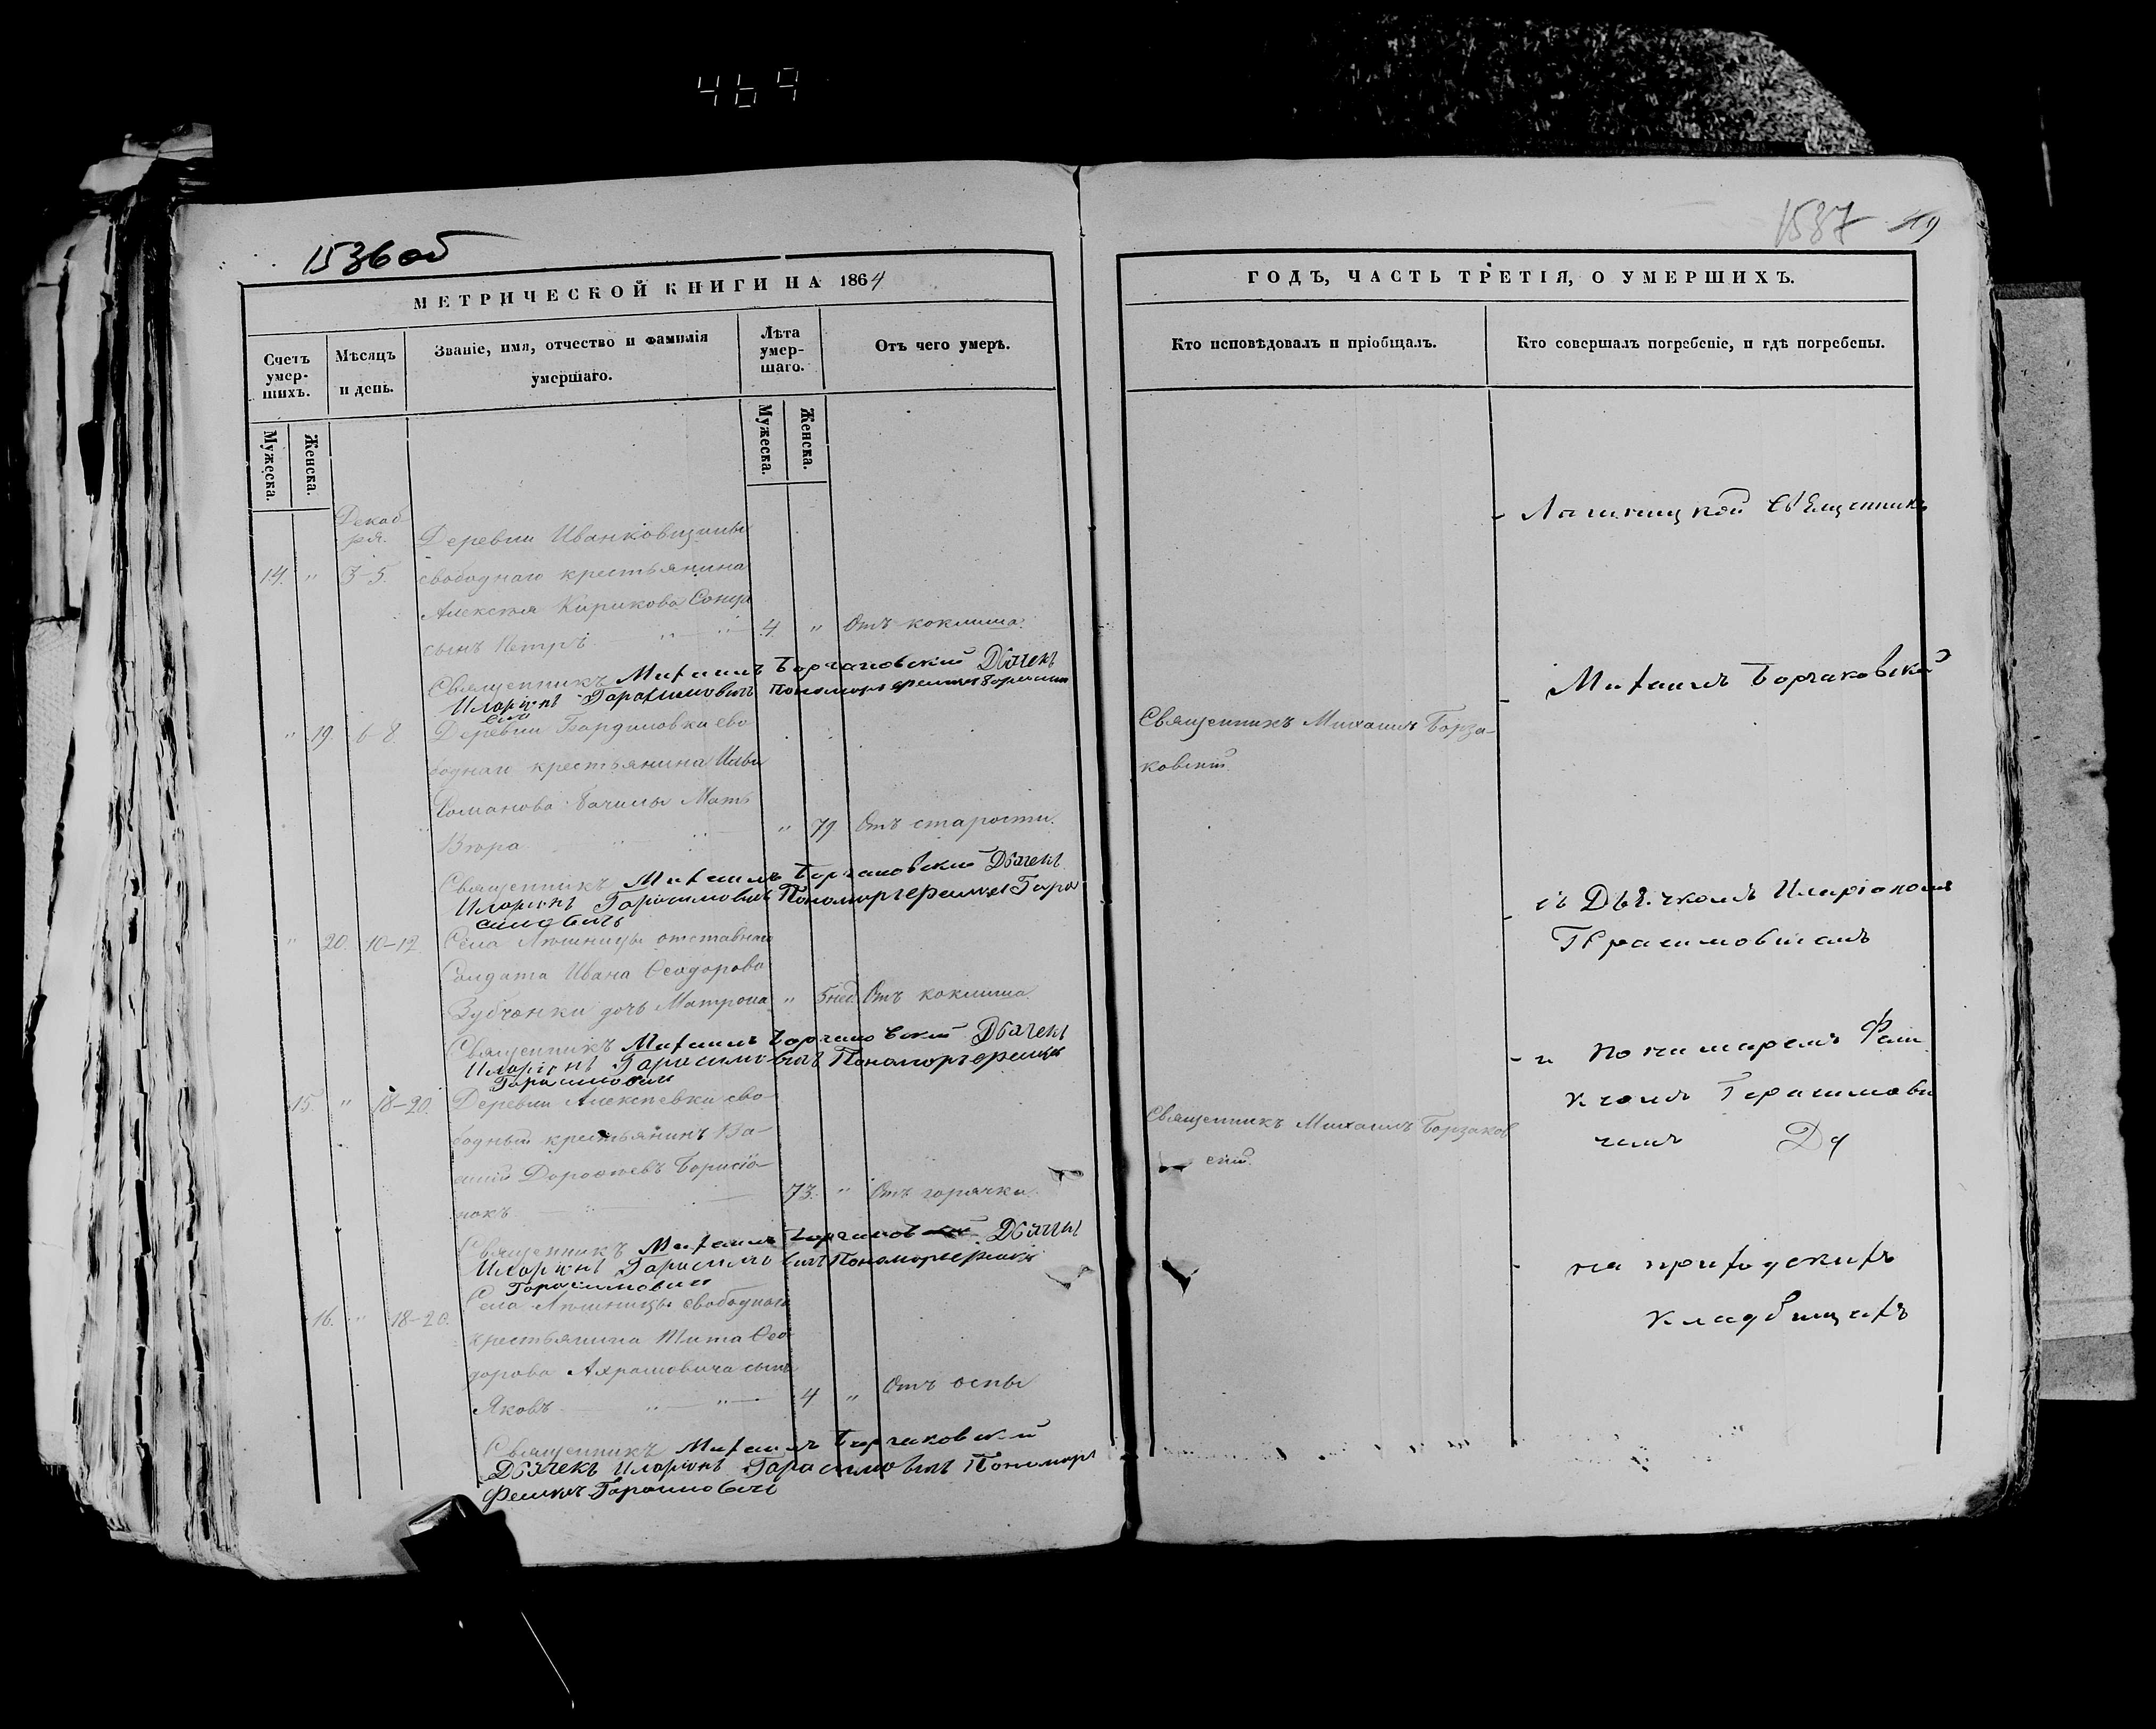 469
1536об
МЕТРИЧЕСКОЙ КНИГИ НА 1864
Счетъ умер-шихъ.
Мѣсяцъ и день.
Званіе, имя, отчество и фамилія умершаго.
Лѣта умер-шаго.
Отъ чего умеръ.
Мужеска.
Женска.
Мужеска.
Женска.
Декаб
ря.
Деревни Иванковщины
14. " 3-5. свободнаго крестьянина
Алексѣя Кирикова
сынъ Петръ 4. " Отъ коклюша.
Священникъ Михаилъ Борзаковский Дьячекъ
Иларіонъ Гарасимовичъ Пономарь
" 19. 6-8. Деревни сво
боднаго крестьянина Ильи
Романова Мать
" 79. Отъ старости.
Священникъ Михаилъ Борзаковский Дьячекъ
Иларіонъ Гарасимовичъ Пономарь Феликсъ Гара
симовичъ
" 20. 10-12. Села Люшницы отставнаго
Солдата Ивана Ѳеодорова
Зубчонки дочь Матрона " 5 нед. Отъ коклюша.
Священникъ Михаилъ Борзаковский Дьячекъ
Иларіонъ Гарасимовичъ Пономарь Феликсъ
Гарасимович
15. " 18-20. Деревни Алексѣевки сво
бодный крестьянинъ Ва-
силій Дороѳеевъ Борисіо-
нокъ 73. " Отъ горячки.
Священникъ Михаилъ Борзаковский Дьячекъ
Иларіонъ Гарасимовичъ Пономарь Феликсъ
Гарасимович
16. " 18-20. Села Люшницы свободнаго
крестьянина Тита Ѳео
дорова Ахрамовича сынъ
Яковъ 4 " Отъ оспы
Священникъ Михаилъ Борзаковский
Дьячекъ Иларіонъ Гарасимовичъ Пономарь
Феликсъ Гарасимовичъ
1537
ГОДЪ, ЧАСТЬ ТРЕТІЯ, О УМЕРШИХЪ.
Кто исповѣдовалъ и пріобщалъ.
Кто совершалъ погребеніе, и гдѣ погребены.
Священникъ Михаилъ Борза-
ковскій.
Священникъ Михаилъ Борзаков
скій.
Священникъ
Михаилъ Борзаковский
съ Дьячкомъ Иларіономъ
Герасимовичемъ
и Пономаремъ Фели
ксомъ Герасимови
чемъ
на приходскихъ
кладбищахъ